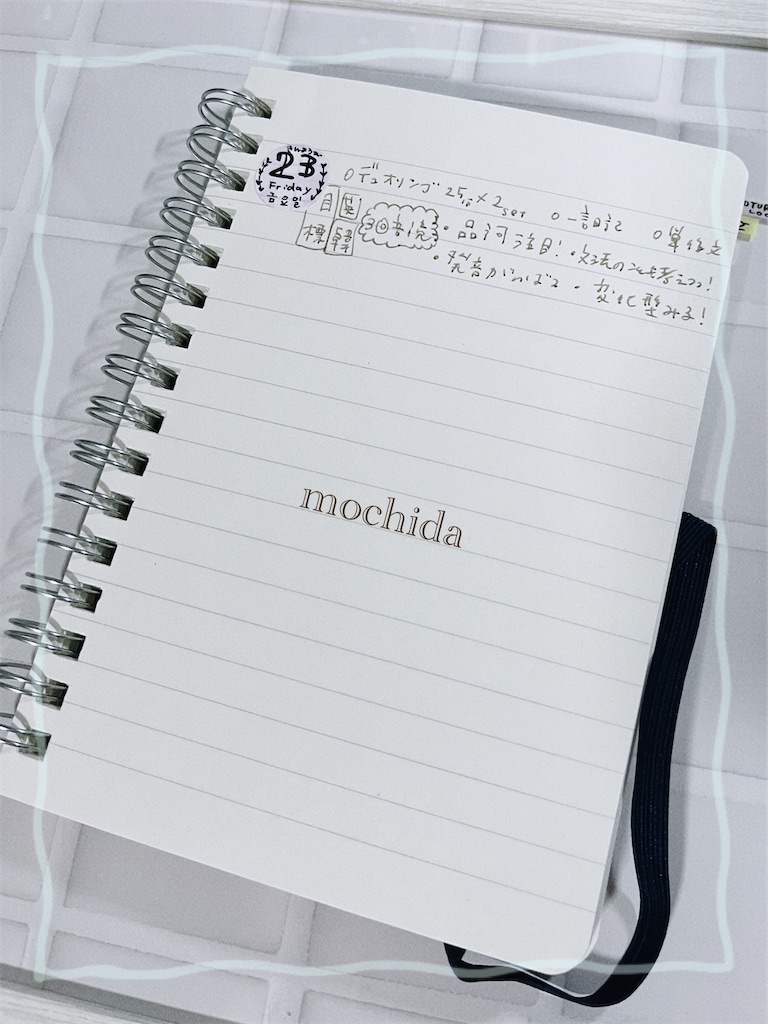 23
Friday
금요일
○デュオリンゴ 25分×2set ○一言日記 ○単作文
目標 3回音読 ・品詞注目! ・文法のこと考えつつ!
・発音がんばる ・変化型みる!
mochida